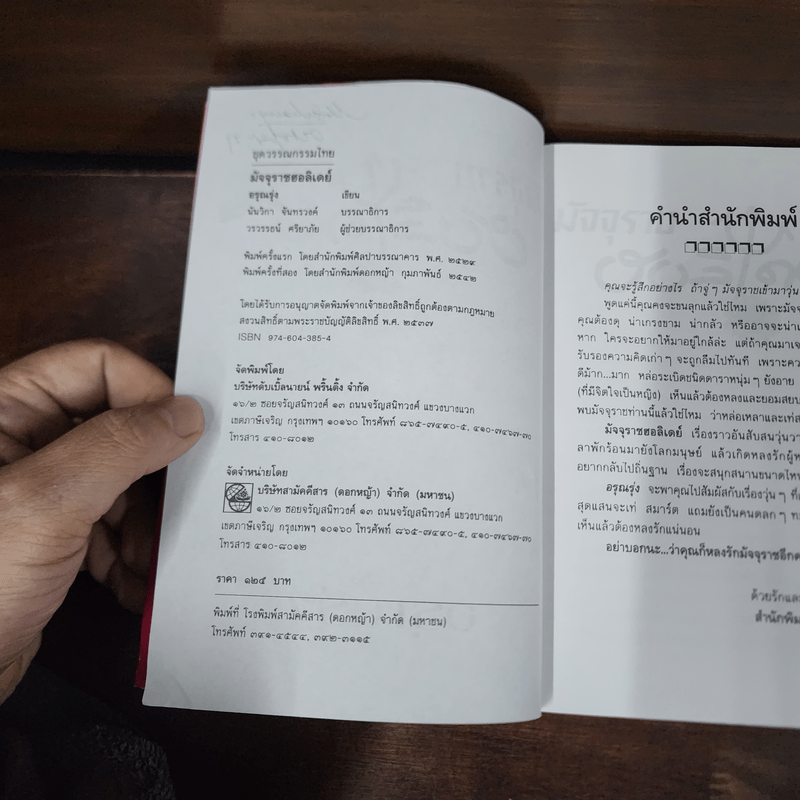 ชุดวรรณกรรมไทย
มัจจุราชฮอลิเดย์
อรุณรุ่ง เขียน
นันวิกา จันทรวงค์ บรรณาธิการ
วรวรรธน์ ศรียาภัย ผู้ช่วยบรรณาธิการ
พิมพ์ครั้งแรก โดยสำนักพิมพ์ศิลปาบรรณาคาร พ.ศ. ๒๕๒๙
พิมพ์ครั้งที่สอง โดยสำนักพิมพ์ดอกหญ้า กุมภาพันธ์ ๒๕๔๒
โดยได้รับการอนุญาตจัดพิมพ์จากเจ้าของลิขสิทธิ์ถูกต้องตามกฎหมาย
สงวนสิทธิ์ตามพระราชบัญญัติลิขสิทธิ์ พ.ศ. ๒๕๓๗
ISBN 974-604-385-4
จัดพิมพ์โดย
บริษัทดับเบิ้ลนายน์ พริ้นติ้ง จำกัด
๑๖/๒ ซอยจรัญสนิทวงศ์ ๑๓ ถนนจรัญสนิทวงศ์ แขวงบางแวก
เขตภาษีเจริญ กรุงเทพฯ ๑๐๑๖๐ โทรศัพท์ ๘๖๕-๗๔๙๐-๕, ๔๑๐-๗๔๖๗-๗๐
โทรสาร ๔๑๐-๘๐๑๒
จัดจำหน่ายโดย
บริษัทสามัคคีสาร (ดอกหญ้า) จำกัด (มหาชน)
๑๖/๒ ซอยจรัญสนิทวงศ์ ๑๓ ถนนจรัญสนิทวงศ์ แขวงบางแวก
เขตภาษีเจริญ กรุงเทพฯ ๑๐๑๖๐ โทรศัพท์ ๘๖๕-๗๔๙๐-๕, ๔๑๐-๗๔๖๗-๗๐
โทรสาร ๔๑๐-๘๐๑๒
ราคา ๑๒๕ บาท
พิมพ์ที่ โรงพิมพ์สามัคคีสาร (ดอกหญ้า) จำกัด (มหาชน)
โทรศัพท์ ๓๙๑-๔๕๔๔, ๓๙๒-๓๑๑๕
คำนำสำนักพิมพ์
คุณจะรู้สึกอย่างไร ถ้าจู่ๆ มัจจุราชเข้ามาวุ่น
พูดแค่นี้คุณคงจะขนลุกแล้วใช่ไหม เพราะมัจจ
คุณต้องดุ น่าเกรงขาม น่ากลัว หรืออาจจะน่าเ
หาก ใครจะอยากให้มาอยู่ใกล้ล่ะ แต่ถ้าคุณมาเจ
รับรองความคิดเก่าๆ จะถูกลืมไปทันที เพราะคว
ดีม้าก...มาก หล่อระเบิดชนิดดาราหนุ่มๆ ยังอาย
(ที่มีจิตใจเป็นหญิง) เห็นแล้วต้องหลงและยอมสยบ
พบมัจจุราชท่านนี้แล้วใช่ไหม ว่าหล่อเหลาและเท่ส
มัจจุราชฮอลิเดย์ เรื่องราวอันสับสนวุ่นวา
ลาพักร้อนมายังโลกมนุษย์ แล้วเกิดหลงรักผู้ห
อยากกลับไปถิ่นฐาน เรื่องจะสนุกสนานขนาดไห
อรุณรุ่ง จะพาคุณไปสัมผัสกับเรื่องวุ่นๆ ที่
สุดแสนจะเท่ สมาร์ต แถมยังเป็นคนตลกๆ ท
เห็นแล้วต้องหลงรักแน่นอน
อย่าบอกนะ...ว่าคุณก็หลงรักมัจจุราชอีกค
ด้วยรักและ
สำนักพิม